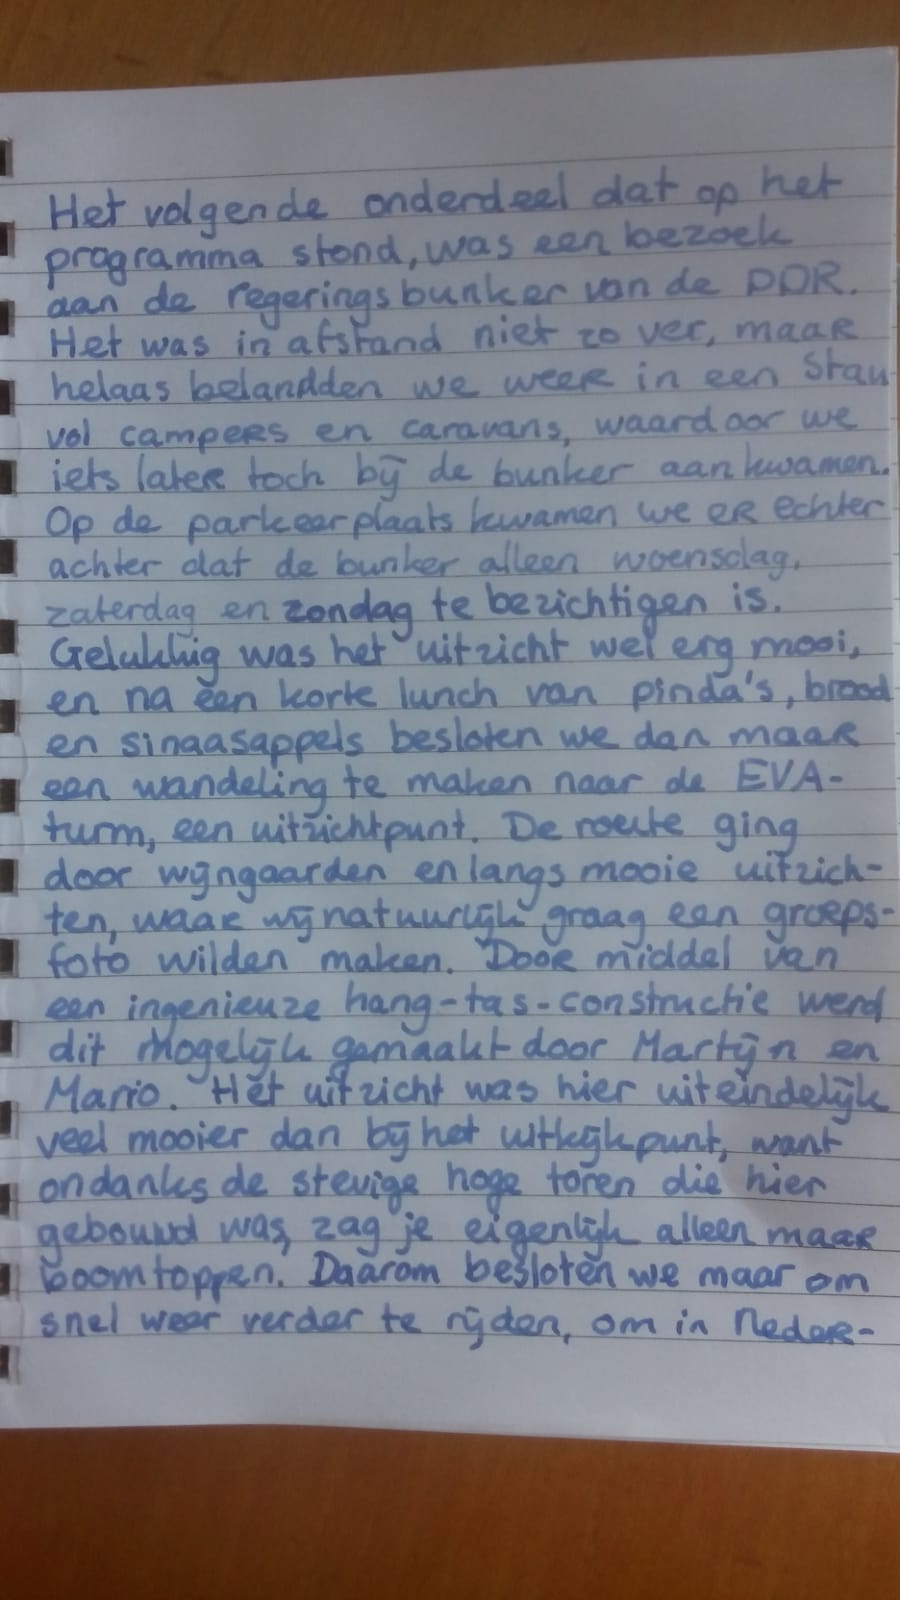 Het volgende onderdeel dat op het
programma stond, was een bezoek
aan de regeringsbunker van de DDR.
Het was in afstand niet zo ver, maar
helaas belandden we weer in een Stau
vol campers en caravans, waardoor we
iets later toch bij de bunker aankwamen.
Op de parkeerplaats kwamen we er echter
achter dat de bunker alleen woensdag,
zaterdag en zondag te bezichtigen is.
Gelukkig was het uitzicht wel erg mooi,
en na een korte lunch van pinda's, brood
en sinaasappels besloten we dan maar
een wandeling te maken naar de EVA-
turm, een uitzichtpunt. De route ging
door wijngaarden en langs mooie uitzich-
ten, waar wij natuurlijk graag een groeps-
foto wilden maken. Door middel van
een ingenieuze hang-tas-constructie werd
dit mogelijk gemaakt door Martijn en
Mario. Het uitzicht was hier uiteindelijk
veel mooier dan bij het uitkijkpunt, want
ondanks de stevige hoge toren die hier
gebouwd was, zag je eigenlijk alleen maar
boomtoppen. Daarom besloten we maar om
snel weer verder te rijden, om in Neder-